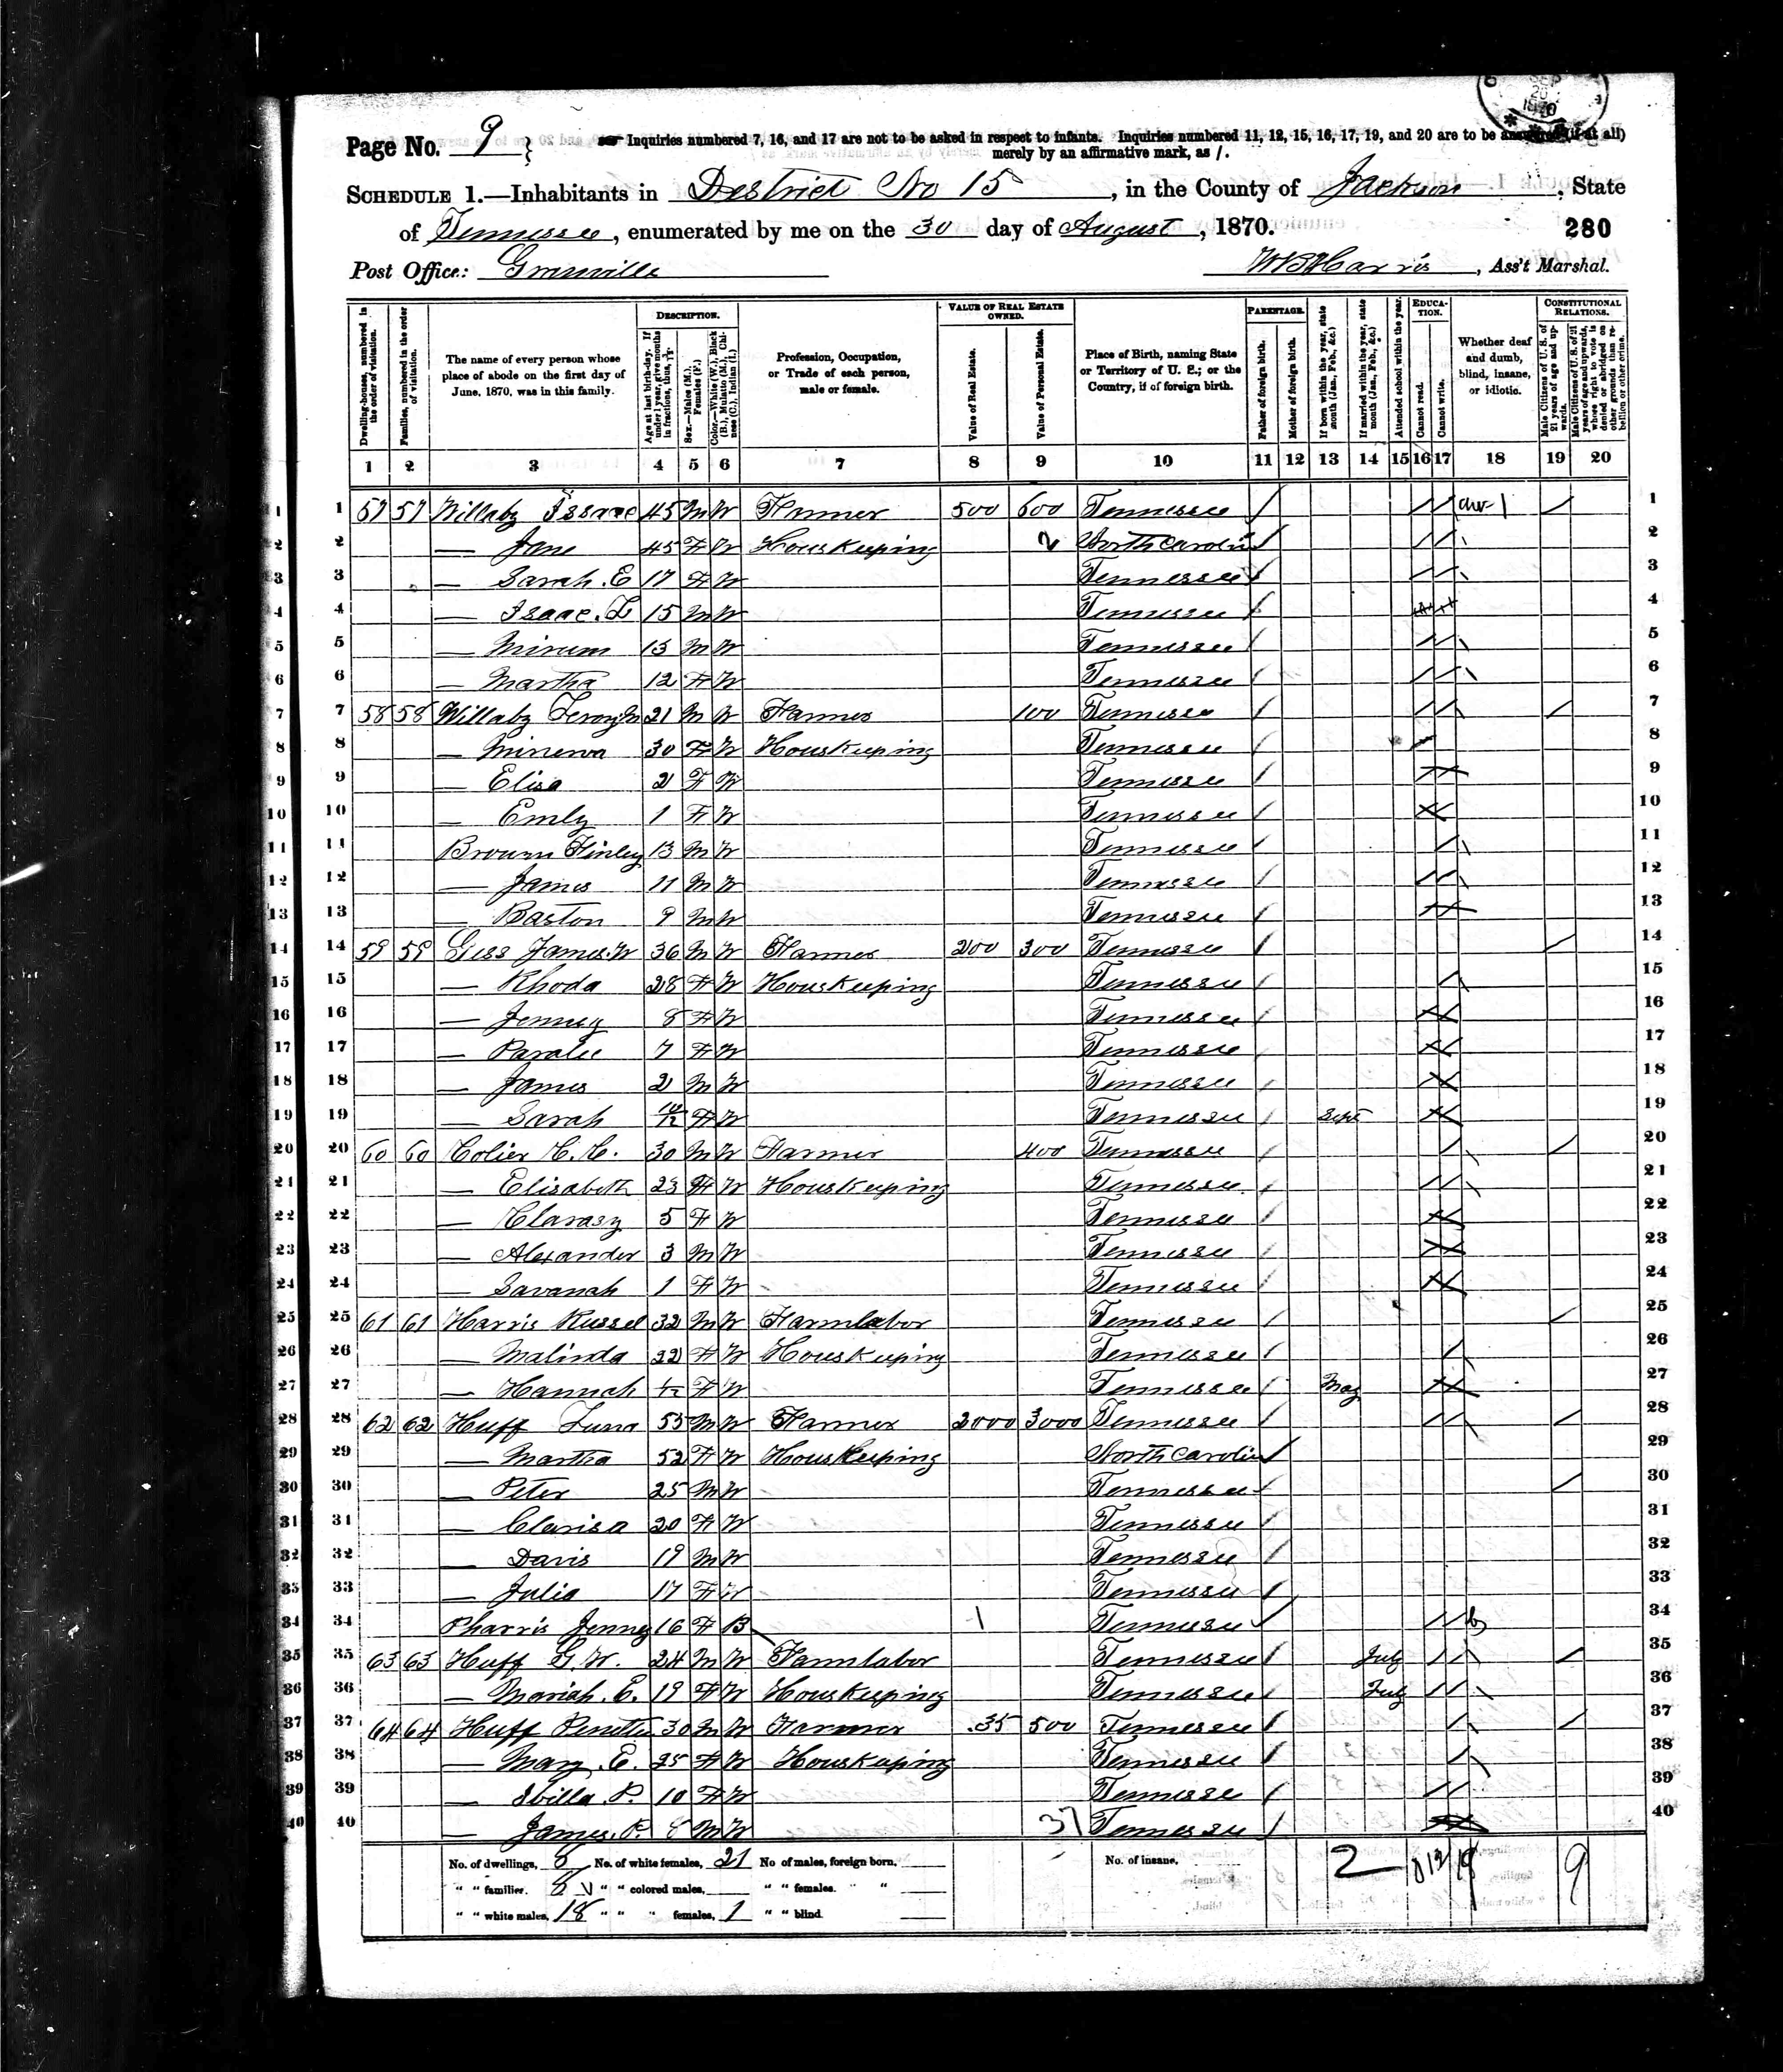 SEP 20 1870
Page No. 9 } Inquiries numbered 7, 16, and 17 are not to be asked in respect to infants. Inquiries numbered 11, 12, 15, 16, 17, 19, and 20 are to be answered (if at all)
merely by an affirmative mark, as /.
SCHEDULE 1.—Inhabitants in District No 15, in the County of Jackson, State
of Tennessee, enumerated by me on the 30 day of August, 1870. 280
Post Office: Granville Harris, Ass't Marshal.
Dwelling-houses, numbered in the order of visitation.
Families, numbered in the order of visitation.
The name of every person whose place of abode on the first day of June, 1870, was in this family.
DESCRIPTION.
Age at last birth-day. If under 1 year, give months in fractions, thus,
Sex.—Males (M.), Females (F.)
Color.—White (W.), Black (B.), Mulatto (M.), Chinese (C.), Indian (I.)
Profession, Occupation, or Trade of each person, male or female.
VALUE OF REAL ESTATE OWNED.
Value of Real Estate.
Value of Personal Estate.
Place of Birth, naming State or Territory of U. S.; or the Country, if of foreign birth.
PARENTAGE.
Father of foreign birth.
Mother of foreign birth.
If born within the year, state month (Jan., Feb., &c.)
If married within the year, state month (Jan., Feb., &c.)
Attended school within the year.
EDUCATION.
Cannot read.
Cannot write.
Whether deaf and dumb, blind, insane, or idiotic.
CONSTITUTIONAL RELATIONS.
Male Citizens of U. S. of 21 years of age and upwards.
Male Citizens of U. S. of 21 years of age and upwards, whose right to vote is denied or abridged on other grounds than rebellion or other crime.
1 2 3 4 5 6 7 8 9 10 11 12 13 14 15 16 17 18 19 20
1 1 57 57 Willaby Issaac 45 M W Farmer 500 600 Tennessee / / / / 1
2 2 — Jane 45 F W HousKeeping North Carolin / / / 2
3 3 — Sarah. E 17 F W Tennessee / / / 3
4 4 — Isaac. L 15 M W Tennessee / 4
5 5 — 13 M W Tennessee / / / 5
6 6 — Martha 12 F W Tennessee / / / 6
7 7 58 58 Willaby Leroy M 21 M W Farmer 100 Tennessee / / / / 7
8 8 — Minerva 30 F W HousKeeping Tennessee / / 8
9 9 — Elisa 2 F W Tennessee / 9
10 10 — Emly 1 F W Tennessee / 10
11 11 Brown Finley 13 M W Tennessee / / 11
12 12 — James 11 M W Tennessee / / / 12
13 13 — Baston 9 M W Tennessee / 13
14 14 59 59 James. W 36 M W Farmer 200 300 Tennessee / / 14
15 15 — Rhoda 28 F W HousKeeping Tennessee / / 15
16 16 — Jenney 8 F W Tennessee / 16
17 17 — Paralee 7 F W Tennessee / 17
18 18 — James 2 M W Tennessee / 18
19 19 — Sarah F W Tennessee / Sept 19
20 20 60 60 Colier C. C. 30 M W Farmer 400 Tennessee / / / 20
21 21 — Elisabeth 23 F W HousKeeping Tennessee / / / 21
22 22 — Clarasy 5 F W Tennessee / 22
23 23 — Alexander 3 M W Tennessee / 23
24 24 — Savanah 1 F W Tennessee / 24
25 25 61 61 Harris Russel 32 M W Farmlabor Tennessee / / 25
26 26 — Malinda 22 F W HousKeeping Tennessee / / 26
27 27 — Hannah F W Tennessee / May 27
28 28 62 62 Huff 55 M W Farmer 2000 3000 Tennessee / / / / 28
29 29 — Martha 52 F W HousKeeping North Carolin / 29
30 30 — Peter 25 M W Tennessee / / 30
31 31 — Clarisa 20 F W Tennessee / 31
32 32 — Davis 19 M W Tennessee / 32
33 33 — Julia 17 F W Tennessee / 33
34 34 Pharris Jenney 16 F B Tennessee / / / 34
35 35 63 63 Huff G. W. 24 M W Farmlabor Tennessee / July / / / 35
36 36 — Mariah. E. 19 F W HousKeeping Tennessee / July / / 36
37 37 64 64 Huff 30 M W Farmer .35 500 Tennessee / / / 37
38 38 — Mary. E. 25 F W HousKeeping Tennessee / / 38
39 39 — P. 10 F W Tennessee / / / 39
40 40 — James. P. 8 M W 37 Tennessee / 40
No. of dwellings, 8 No. of white females, 21 No of males, foreign born, No. of insane, 2 9
" " families, 8 " " colored males, " " females, " "
" " white males, 18 " " " females, 1 " " blind